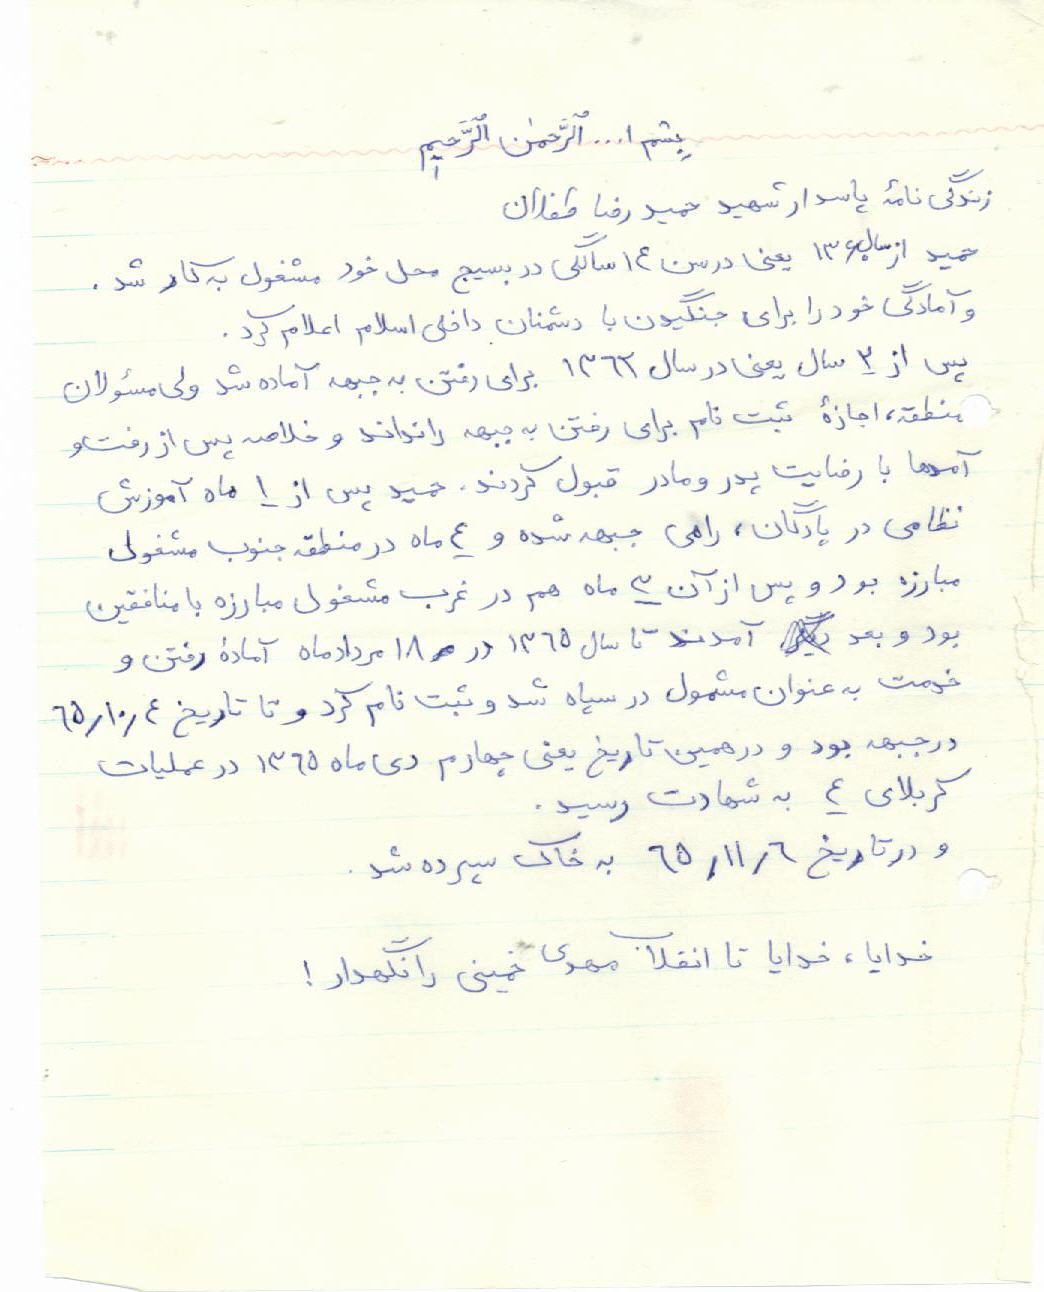 بِسْمِ ا... الرَّحمنِ الرَّحیمِ
زندگی نامهٔ پاسدار شهید حمید رضا طفلان
حمید از سال ۱۳۶۰ یعنی در سن ۱۴ سالگی در بسیج محل خود مشغول به کار شد .
و آمادگی خود را برای جنگیدن با دشمنان داخلی اسلام اعلام کرد .
پس از ۲ سال یعنی در سال ۱۳۶۲ برای رفتن به جبهه آماده شد ولی مسئولان
منطقه، اجازهٔ ثبت نام برای رفتن به جبهه را نداند و خلاصه پس از رفت و
آمدها با رضایت پدر و مادر قبول کردند . حمید پس از ۱ ماه آموزش
نظامی در پادگان ، راهی جبهه شده و ٤ ماه در منطقه جنوب مشغول
مبارزه بود و پس از آن ۳ ماه هم در غرب مشغول مبارزه با منافقین
بود و بعد آمدند تا سال ۱۳٦٥ در ۱۸ مرداد ماه آمادهٔ رفتن و
خدمت به عنوان مشمول در سپاه شد و ثبت نام کرد و تا تاریخ ٦٥/۱۰/٤
در جبهه بود و در همین تاریخ یعنی چهارم دی ماه ۱۳٦٥ در عملیات
کربلای ٤ به شهادت رسید .
و در تاریخ ٦٥/۱۱/٦ به خاک سپرده شد .
خدایا ، خدایا تا انقلاب مهدی خمینی را نگهدار !